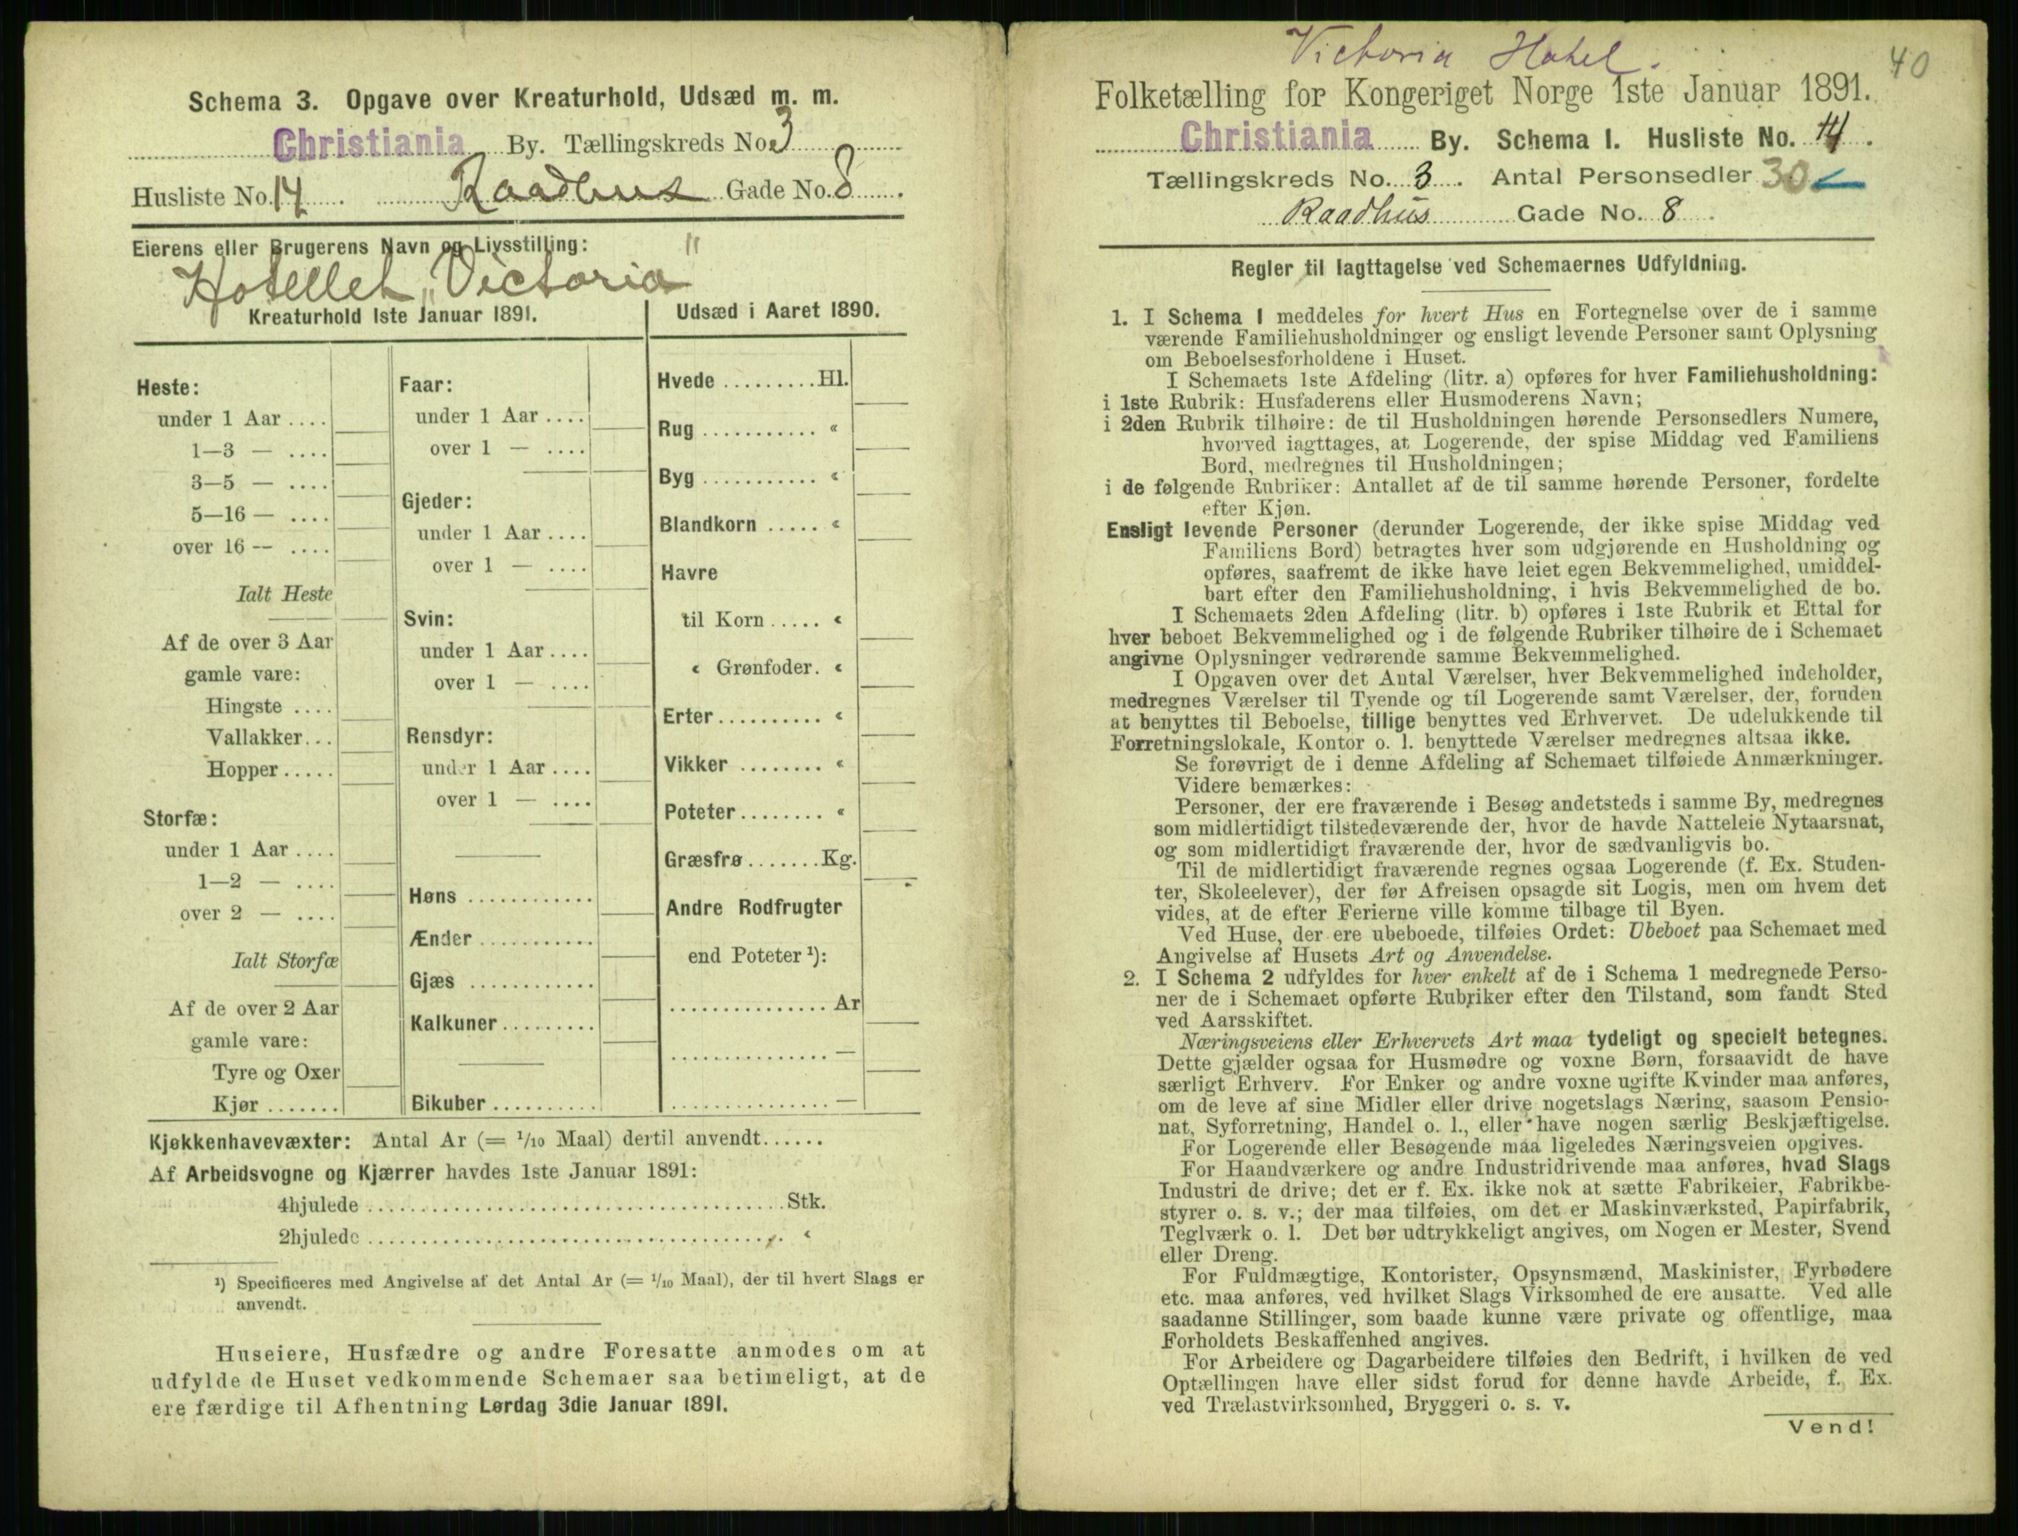 Schema 3. Opgave over Kreaturhold, Udsæd m. m.
Christiania By. Tællingskreds No. 3
Husliste No. 14 Raadhus Gade No. 8
Eierens eller Brugerens Navn og Livsstilling:
Hotellet „Victoria"
Kreaturhold 1ste Januar 1891.
Heste:
under 1 Aar ....
1—3 — ....
3—5 — ....
5—16 — ....
over 16 — ....
Ialt Heste
Af de over 3 Aar
gamle vare:
Hingste ....
Vallakker...
Hopper.....
Storfæ:
under 1 Aar ....
1—2 — ....
over 2 — ....
Ialt Storfæ
Af de over 2 Aar
gamle vare:
Tyre og Oxer
Kjør.......
Faar:
under 1 Aar ....
over 1 — ....
Gjeder:
under 1 Aar ....
over 1 — ....
Svin:
under 1 Aar ....
over 1 — ....
Rensdyr:
under 1 Aar ....
over 1 — ....
Høns ............
Ænder ...........
Gjæs ............
Kalkuner.........
Bikuber ..........
Udsæd i Aaret 1890.
Hvede .........Hl.
Rug ........... «
Byg ........... «
Blandkorn ..... «
Havre
til Korn ..... «
« Grønfoder. «
Erter.......... «
Vikker ........ «
Poteter........ «
Græsfrø.......Kg.
Andre Rodfrugter
end Poteter ¹):
............... Ar
............... —
............... —
Kjøkkenhavevæxter: Antal Ar (= 1/10 Maal) dertil anvendt......
Af Arbeidsvogne og Kjærrer havdes 1ste Januar 1891:
4hjulede ....................................... Stk.
2hjulede ....................................... «
¹) Specificeres med Angivelse af det Antal Ar (= 1/10 Maal), der til hvert Slags er
anvendt.
Huseiere, Husfædre og andre Foresatte anmodes om at
udfylde de Huset vedkommende Schemaer saa betimeligt, at de
ere færdige til Afhentning Lørdag 3die Januar 1891.
Victoria Hotel.
40
Folketælling for Kongeriget Norge 1ste Januar 1891.
Christiania By. Schema 1. Husliste No. 14.
Tællingskreds No. 3. Antal Personsedler 30
Raadhus Gade No. 8.
Regler til Iagttagelse ved Schemaernes Udfyldning.
1. I Schema 1 meddeles for hvert Hus en Fortegnelse over de i samme
værende Familiehusholdninger og ensligt levende Personer samt Oplysning
om Beboelsesforholdene i Huset.
I Schemaets 1ste Afdeling (litr. a) opføres for hver Familiehusholdning:
i 1ste Rubrik: Husfaderens eller Husmoderens Navn;
i 2den Rubrik tilhøire: de til Husholdningen hørende Personsedlers Numere,
hvorved iagttages, at Logerende, der spise Middag ved Familiens
Bord, medregnes til Husholdningen;
i de følgende Rubriker: Antallet af de til samme hørende Personer, fordelte
efter Kjøn.
Ensligt levende Personer (derunder Logerende, der ikke spise Middag ved
Familiens Bord) betragtes hver som udgjørende en Husholdning og
opføres, saafremt de ikke have leiet egen Bekvemmelighed, umiddel-
bart efter den Familiehusholdning, i hvis Bekvemmelighed de bo.
I Schemaets 2den Afdeling (litr. b) opføres i 1ste Rubrik et Ettal for
hver beboet Bekvemmelighed og i de følgende Rubriker tilhøire de i Schemaet
angivne Oplysninger vedrørende samme Bekvemmelighed.
I Opgaven over det Antal Værelser, hver Bekvemmelighed indeholder,
medregnes Værelser til Tyende og til Logerende samt Værelser, der, foruden
at benyttes til Beboelse, tillige benyttes ved Erhvervet. De udelukkende til
Forretningslokale, Kontor o. l. benyttede Værelser medregnes altsaa ikke.
Se forøvrigt de i denne Afdeling af Schemaet tilføiede Anmærkninger.
Videre bemærkes:
Personer, der ere fraværende i Besøg andetsteds i samme By, medregnes
som midlertidigt tilstedeværende der, hvor de havde Natteleie Nytaarsnat,
og som midlertidigt fraværende der, hvor de sædvanligvis bo.
Til de midlertidigt fraværende regnes ogsaa Logerende (f. Ex. Studen-
ter, Skoleelever), der før Afreisen opsagde sit Logis, men om hvem det
vides, at de efter Ferierne ville komme tilbage til Byen.
Ved Huse, der ere ubeboede, tilføies Ordet: Ubeboet paa Schemaet med
Angivelse af Husets Art og Anvendelse.
2. I Schema 2 udfyldes for hver enkelt af de i Schema 1 medregnede Perso-
ner de i Schemaet opførte Rubriker efter den Tilstand, som fandt Sted
ved Aarsskiftet.
Næringsveiens eller Erhvervets Art maa tydeligt og specielt betegnes.
Dette gjælder ogsaa for Husmødre og voxne Børn, forsaavidt de have
særligt Erhverv. For Enker og andre voxne ugifte Kvinder maa anføres,
om de leve af sine Midler eller drive nogetslags Næring, saasom Pensio-
nat, Syforretning, Handel o. l., eller have nogen særlig Beskjæftigelse.
For Logerende eller Besøgende maa ligeledes Næringsveien opgives.
For Haandværkere og andre Industridrivende maa anføres, hvad Slags
Industri de drive; det er f. Ex. ikke nok at sætte Fabrikeier, Fabrikbe-
styrer o. s. v.; der maa tilføies, om det er Maskinværksted, Papirfabrik,
Teglværk o. l. Det bør udtrykkeligt angives, om Nogen er Mester, Svend
eller Dreng.
For Fuldmægtige, Kontorister, Opsynsmænd, Maskinister, Fyrbødere
etc. maa anføres, ved hvilket Slags Virksomhed de ere ansatte. Ved alle
saadanne Stillinger, som baade kunne være private og offentlige, maa
Forholdets Beskaffenhed angives.
For Arbeidere og Dagarbeidere tilføies den Bedrift, i hvilken de ved
Optællingen have eller sidst forud for denne havde Arbeide, f. Ex.
ved Trælastvirksomhed, Bryggeri o. s. v.
Vend!